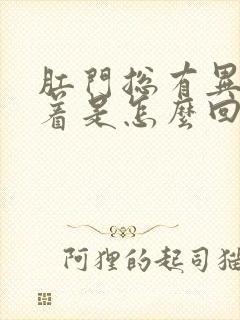 肛門总有異
着是怎麼回
阿狸的起司猫